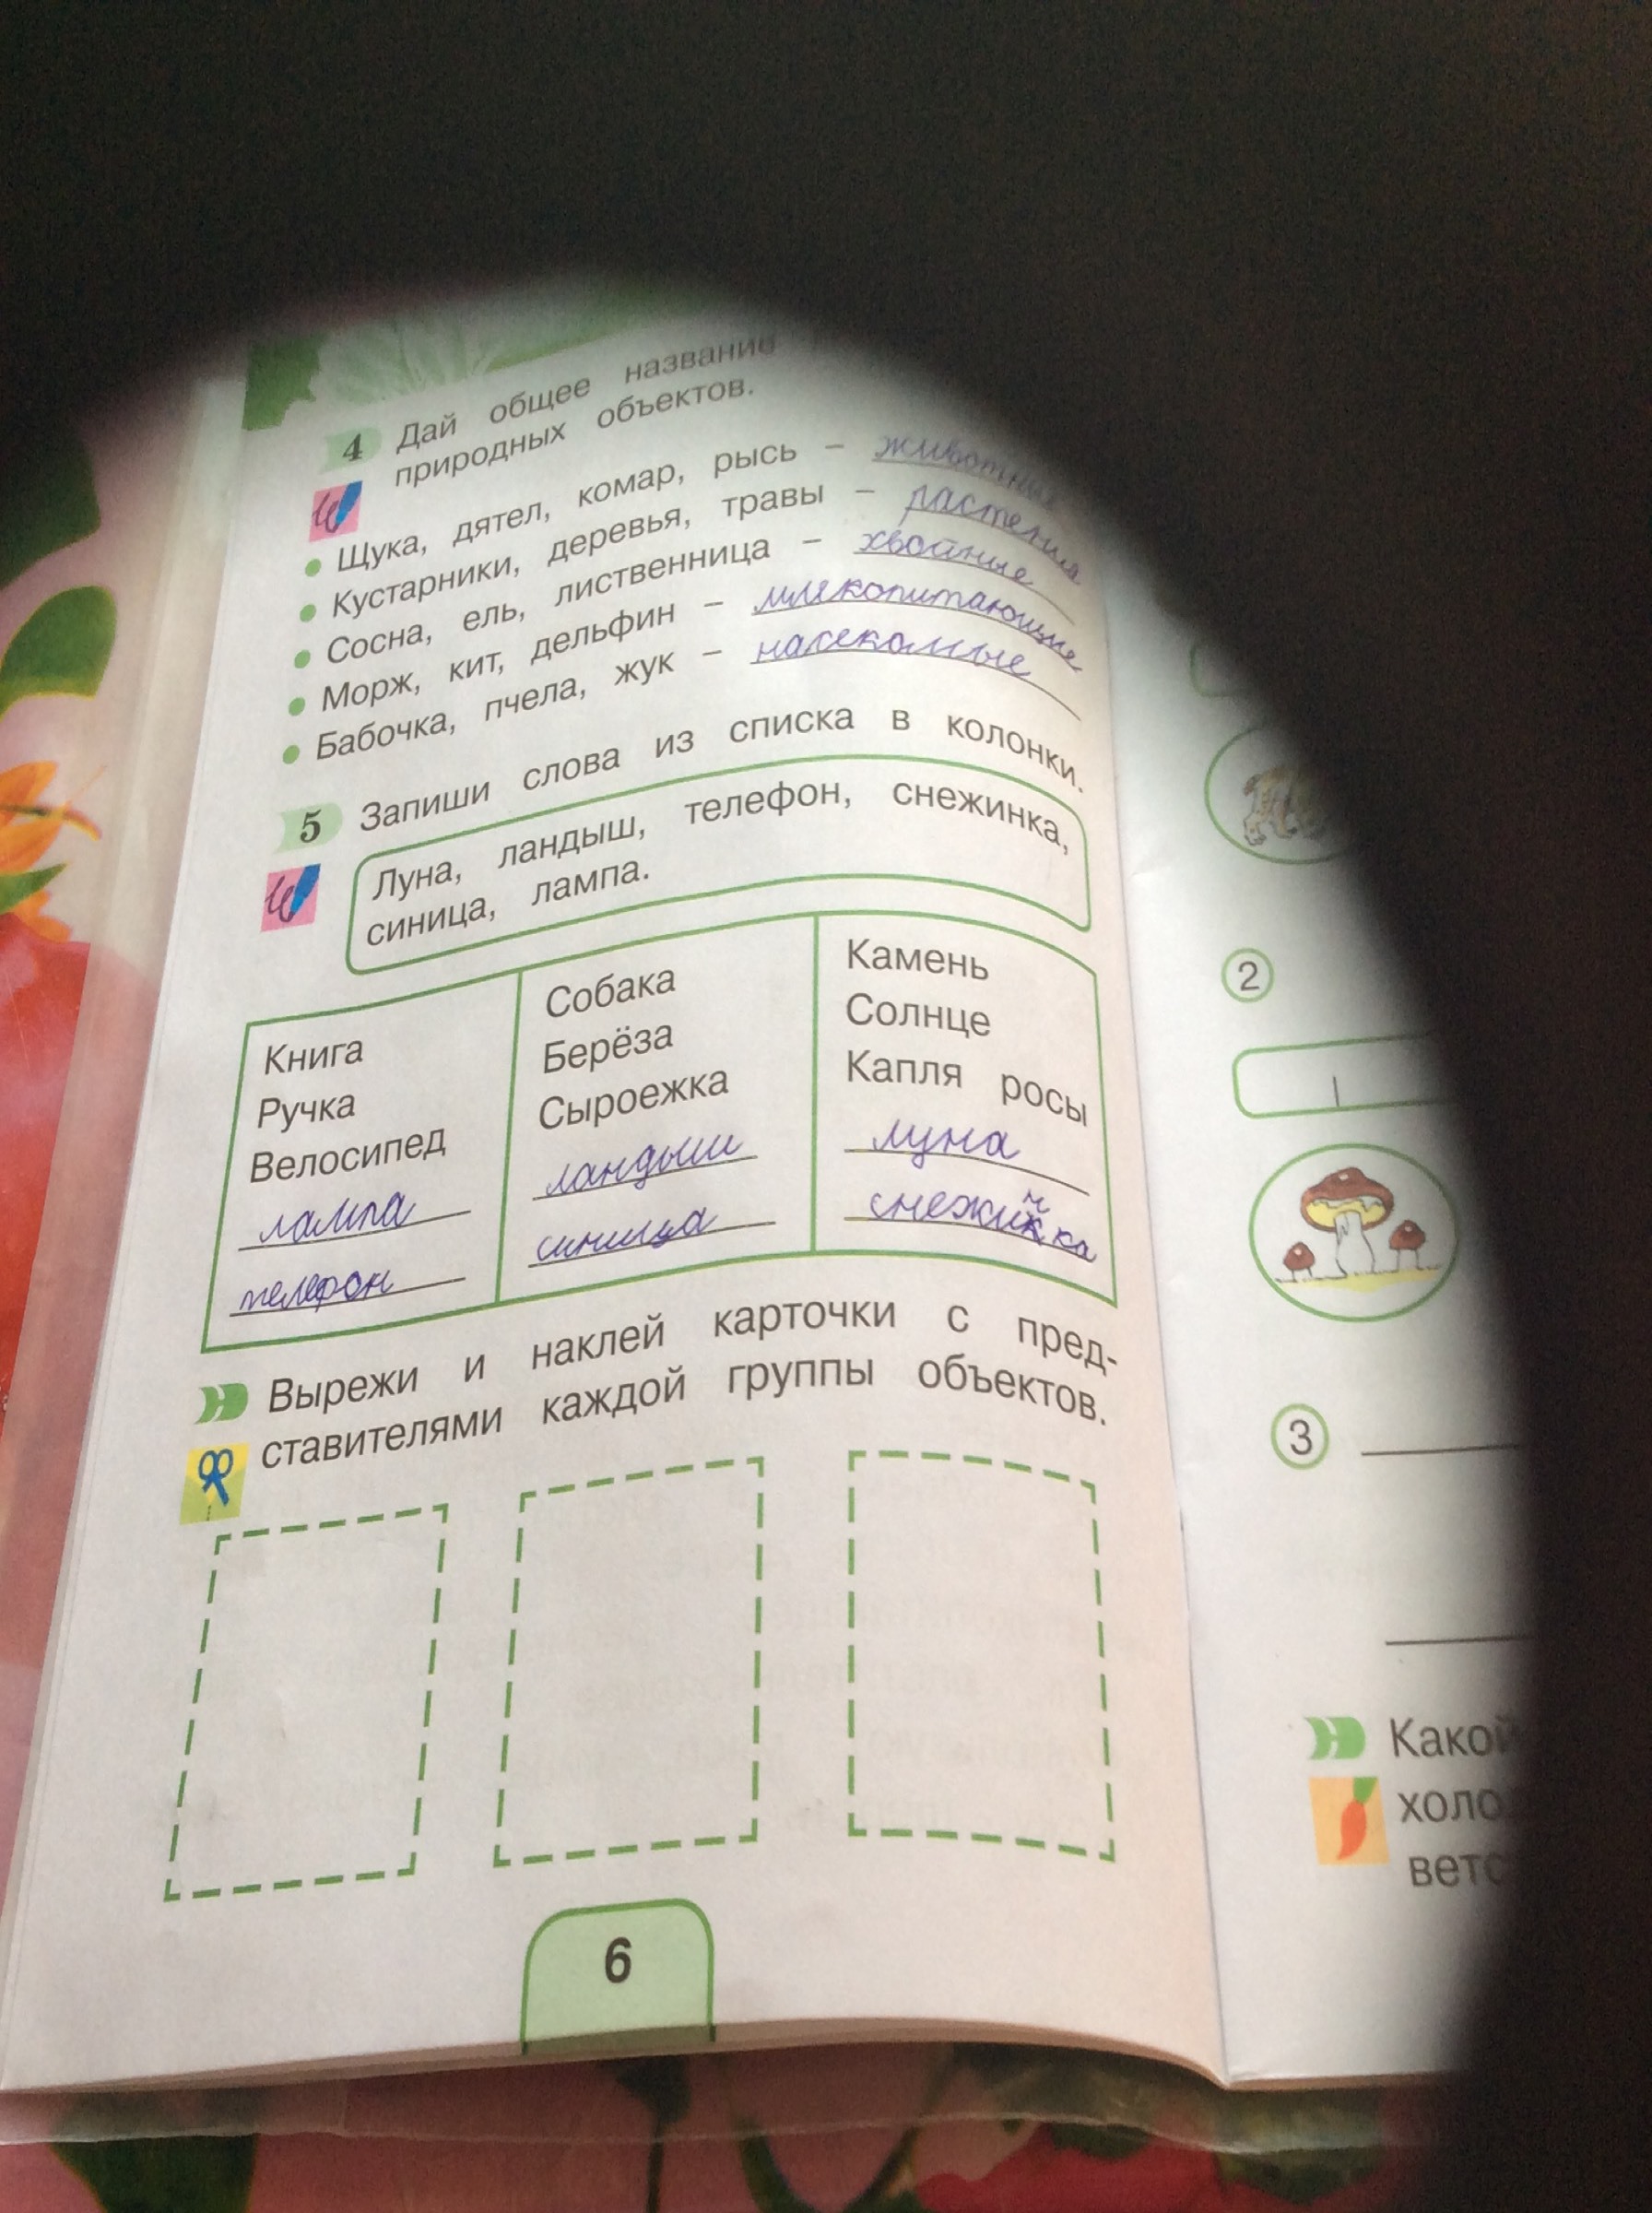 4 Дай общее название
природных объектов.
• Щука, дятел, комар, рысь – животные
• Кустарники, деревья, травы – растения
• Сосна, ель, лиственница – хвойные
• Морж, кит, дельфин – млекопитающие
• Бабочка, пчела, жук – насекомые
5 Запиши слова из списка в колонки.
Луна, ландыш, телефон, снежинка,
синица, лампа.
Книга
Ручка
Велосипед
лампа
телефон
Собака
Берёза
Сыроежка
ландыш
синица
Камень
Солнце
Капля росы
луна
снежинка
Вырежи и наклей карточки с пред-
ставителями каждой группы объектов.
6
2
3
Какой
холо
ветс